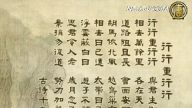 行行重行行
行行重行行 與君生別離
相去萬餘里 各在天一涯
道路阻且長 會面安可知
胡馬依北風 越鳥巢南枝
相去日已遠 衣帶日已緩
浮雲蔽白日 遊子不顧返
思君令人老 歲月忽已晚
棄捐勿復道 努力加餐飯
古詩十